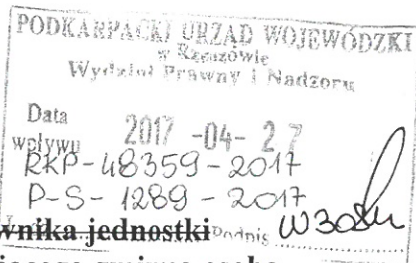 PODKARPACKI URZĄD WOJEWÓDZKI
w Rzeszowie
Wydział Prawny i Nadzoru
Data
wpływu 2017 -04- 27
RKP-48359-2017
P-S-1289-2017
Podpis
wnika jednostki